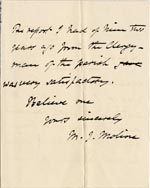 The report I had of him two
years ago from the Clergy-
man of the parish
was very satisfactory.
Believe me
Yours sincerely
M. J. Moline